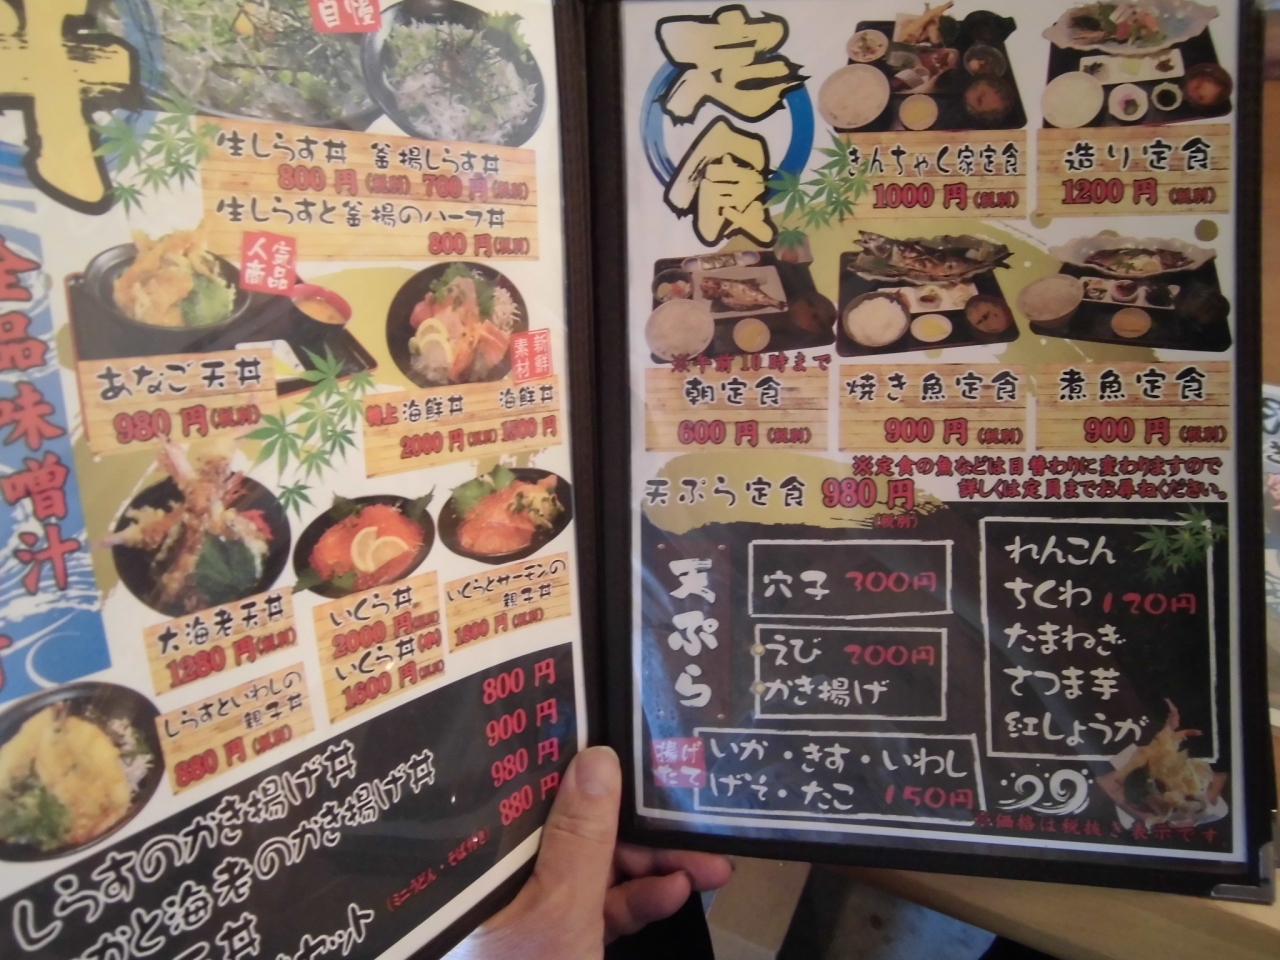 丼
自慢
生しらす丼 釜揚しらす丼
800円(税別) 700円(税別)
生しらすと釜揚のハーフ丼
800円(税別)
人気商品
新鮮素材
あなご天丼
980円(税別)
特上海鮮丼 海鮮丼
2000円(税別) 1500円
大海老天丼
1280円(税別)
いくら丼
2000円(税別)
いくら丼(小)
1600円(税別)
いくらとサーモンの
親子丼
1600円(税別)
しらすといわしの
親子丼
880円(税別)
全品味噌汁
しらすのかき揚げ丼 800円
かと海老のかき揚げ丼 900円
天丼 980円
セット 880円
(ミニうどん・そば付き)
定食
きんちゃく家定食
1000円(税別)
造り定食
1200円(税別)
※午前10時まで
朝定食
600円(税別)
焼き魚定食
900円(税別)
煮魚定食
900円(税別)
※定食の魚などは日替わりに変わりますので
詳しくは定員までお尋ねください。
天ぷら定食 980円
(税別)
天ぷら
穴子 300円
えび 200円
かき揚げ
揚げたて
いか・きす・いわし
げそ・たこ 150円
れんこん
ちくわ 120円
たまねぎ
さつま芋
紅しょうが
※価格は税抜き表示です